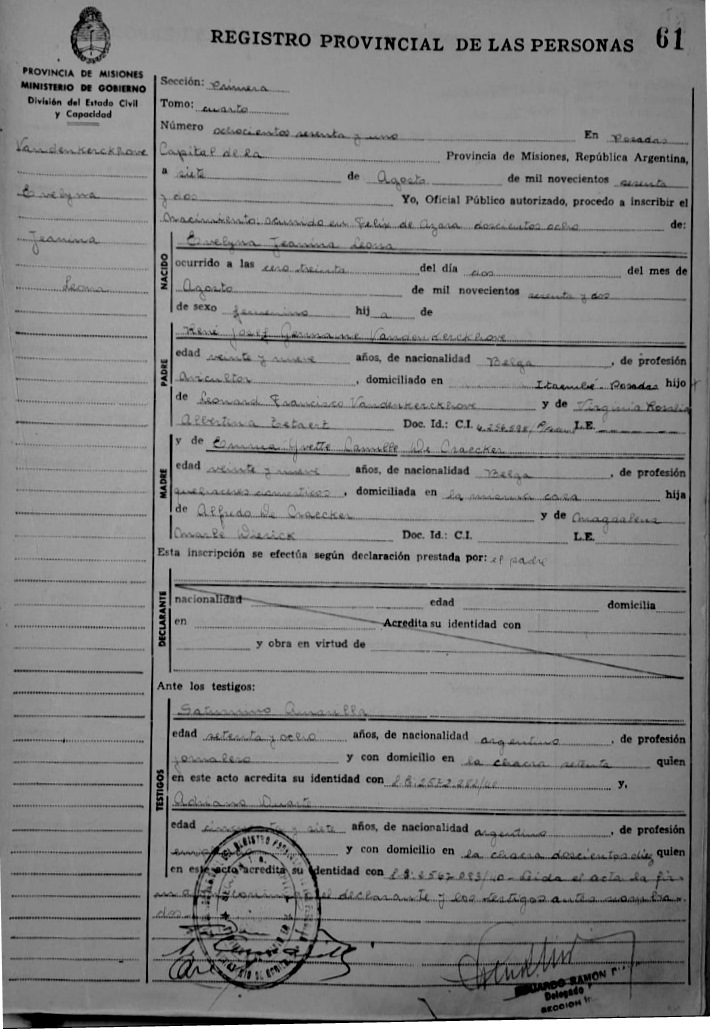 REGISTRO PROVINCIAL DE LAS PERSONAS 61
PROVINCIA DE MISIONES
MINISTERIO DE GOBIERNO
División del Estado Civil
y Capacidad
Vandenkerckhove
Evelyna
Jeanina
Leona
Sección: Primera
Tomo: cuarto
Número ochocientos sesenta y uno En Posadas
Capital de la Provincia de Misiones, República Argentina,
a siete de Agosto de mil novecientos sesenta
y dos Yo, Oficial Público autorizado, procedo a inscribir el
nacimiento ocurrido en Felix de Azara doscientos ocho de:
NACIDO
Evelyna Jeanina Leona
ocurrido a las cero treinta del día dos del mes de
Agosto de mil novecientos sesenta y dos
de sexo femenino hij a de
PADRE
René Josef Germaine Vandenkerckhove
edad veinte y nueve años, de nacionalidad Belga, de profesión
, domiciliado en Itaembé Posadas hijo
de Leonard Francisco Vandenkerckhove y de Virginia Rosalia
Albertina Doc. Id.: C.I. L.E.
y de Emma Yvette Camille De Craecker
MADRE
edad veinte y nueve años, de nacionalidad Belga, de profesión
quehaceres domesticos, domiciliada en la misma casa hija
de Alfredo De Craecker y de Magdalena
Marie Doc. Id.: C.I. L.E.
Esta inscripción se efectúa según declaración prestada por: el padre
DECLARANTE
nacionalidad edad domicilia
en Acredita su identidad con
y obra en virtud de
Ante los testigos:
TESTIGOS
Saturnino
edad setenta y ocho años, de nacionalidad argentino, de profesión
jornalero y con domicilio en la chacra setenta quien
en este acto acredita su identidad con y,
Adriano Duarte
edad cincuenta y siete años, de nacionalidad argentino, de profesión
y con domicilio en la chacra doscientos diez quien
en este acto acredita su identidad con Leida el acta la fir-
el declarante y los testigos antes nombra-
dos
EDUARDO RAMON
Delegado
SECCION